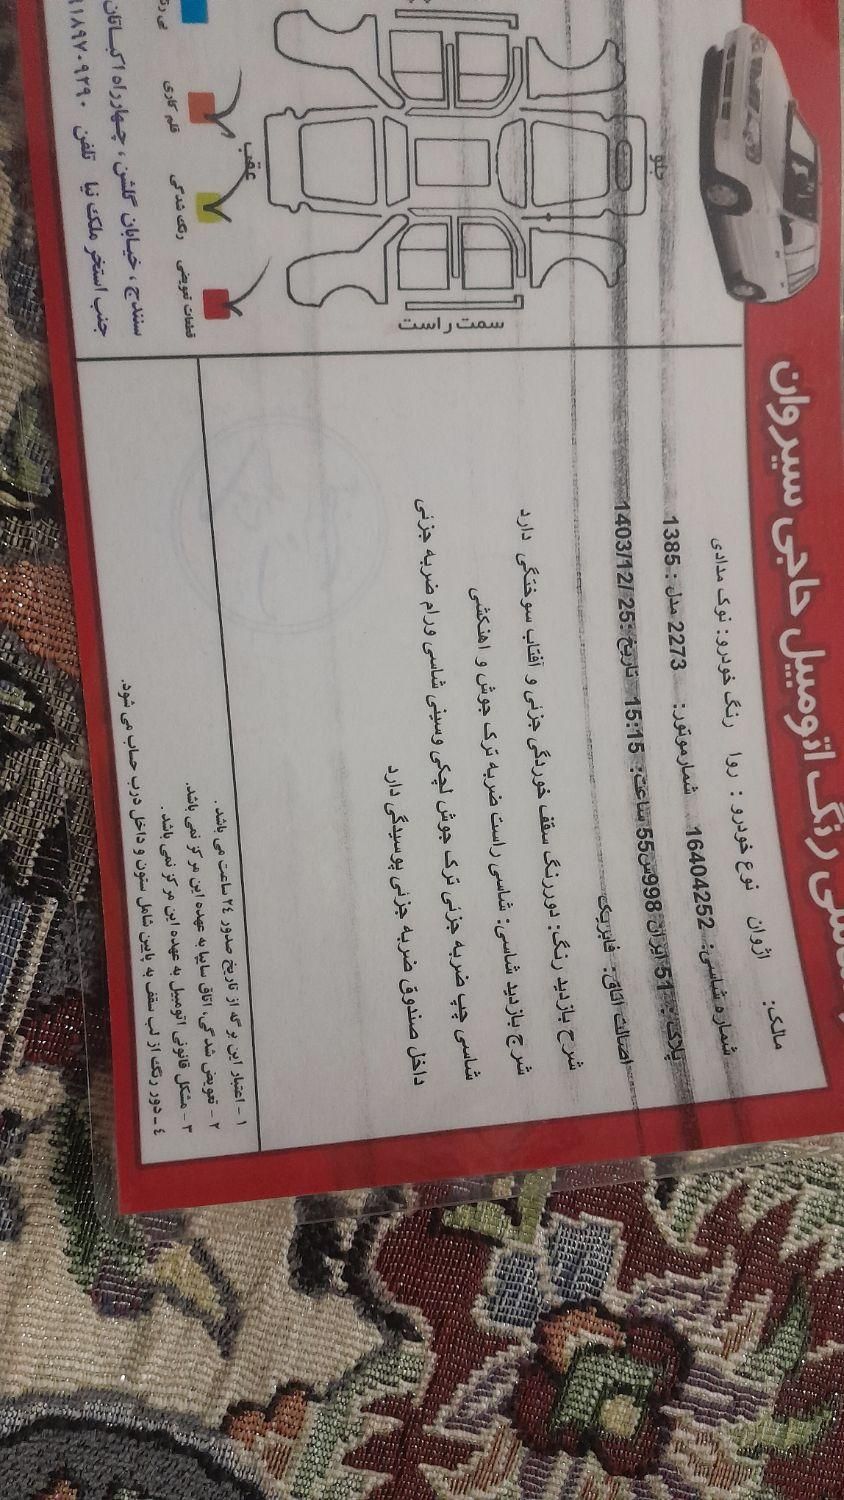 رنگ اتومبیل حاجی سیروان
مالک: اژوان نوع خودرو: روا رنگ خودرو: نوک مدادی
شماره شاسی: 16404252 شمارموتور: 2273 مدل: 1385
پلاک: 51 ایران 998س55 ساعت: 15:15 تاریخ: 1403/12/25
اصالت اتاق: فابریک
شرح بازدید رنگ: دوررنگ سقف خوردگی جزئی و آفتاب سوختگی دارد
شرح بازدید شاسی: شاسی راست ضربه ترک جوش و اهنکشی
شاسی چپ ضربه جزئی ترک جوش لچکی وسینی شاسی ورام ضربه جزئی
داخل صندوق ضربه جزئی پوسیدگی دارد
جلو
عقب
سمت راست
قطعات تعویضی
رنگ شدگی
قلم کاری
۱ - اعتبار این برگه از تاریخ صدور ۲۴ ساعت می باشد.
۲ - تعویض شدگی، اتاق سایپا به عهده این مرکز نمی باشد.
۳ - مشکل قانونی اتومبیل به عهده این مرکز نمی باشد.
٤ - دور رنگ از لب سقف به پایین شامل ستون و داخل درب حساب می شود.
سنندج، خیابان گلشن، چهارراه اکباتان
جنب استخر ملک نیا تلفن